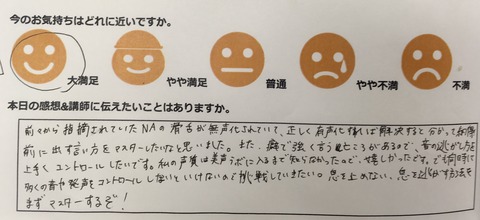 今のお気持ちはどれに近いですか。
大満足 やや満足 普通 やや不満 不満
本日の感想&講師に伝えたいことはありますか。
前々から指摘されていたNAの 音が無声化されていて、正しく有声化すれば解決すると分かって
前に出す言い方をマスターしたいなと思いました。また、癖で強く言う ところがあるので、音の逃がし方を
上手くコントロールしたいです。私の声質は美声 に入るまで知らなかったので、嬉しかったです。で 同時に
多くの音や発声をコントロールしないといけないので挑戦していきたい。息を止めない、息を逃がす方法を
まずマスターするぞ!